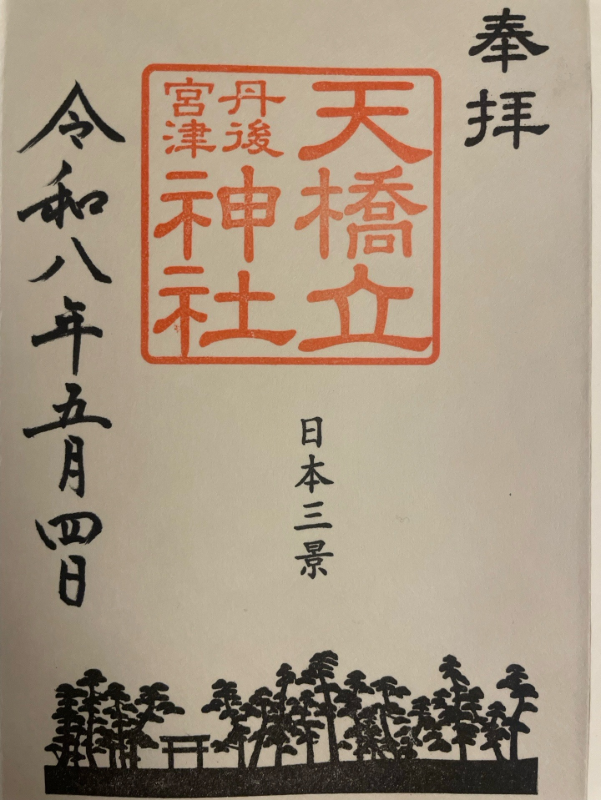 奉拝
天橋立
丹後
宮津
神社
日本三景
令和八年五月四日